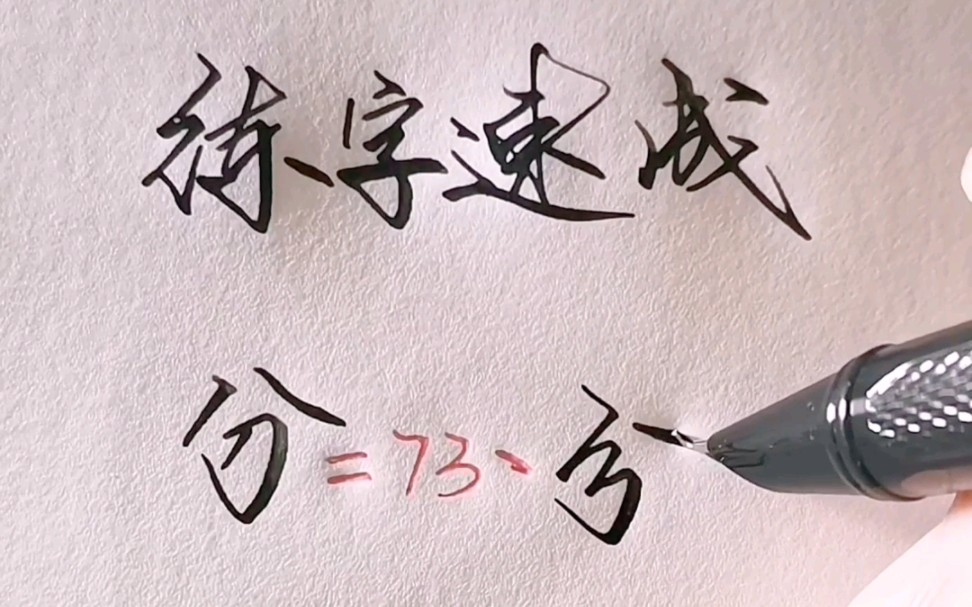 练字速成
分=73、分